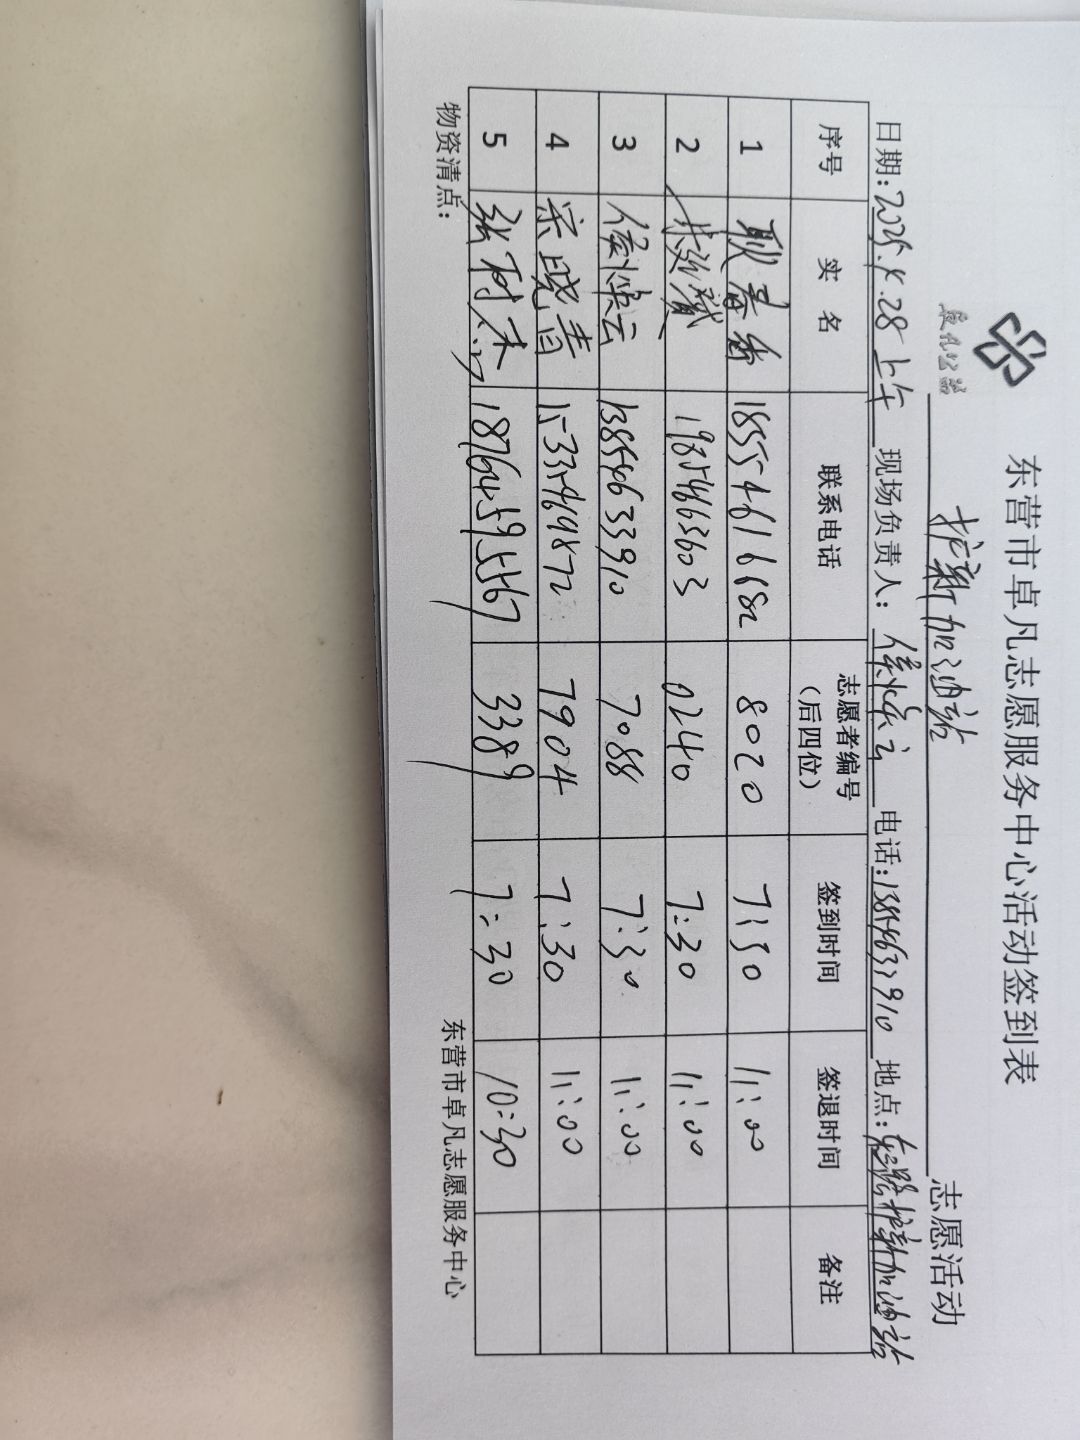 卓凡公益
东营市卓凡志愿服务中心活动签到表
护新加油站 志愿活动
日期:2025.4.28上午 现场负责人: 侯燦云 电话:13854633910 地点:护新加油站
序号 实 名 联系电话 志愿者编号(后四位) 签到时间 签退时间 备注
1 耿春香 18554616182 8020 7:30 11:00
2 19854663603 0240 7:30 11:00
3 侯燦云 13854633910 7088 7:30 11:00
4 宋晓青 15335469872 7904 7:30 11:00
5 张树木 18764595567 3389 7:30 10:30
物资清点:
东营市卓凡志愿服务中心